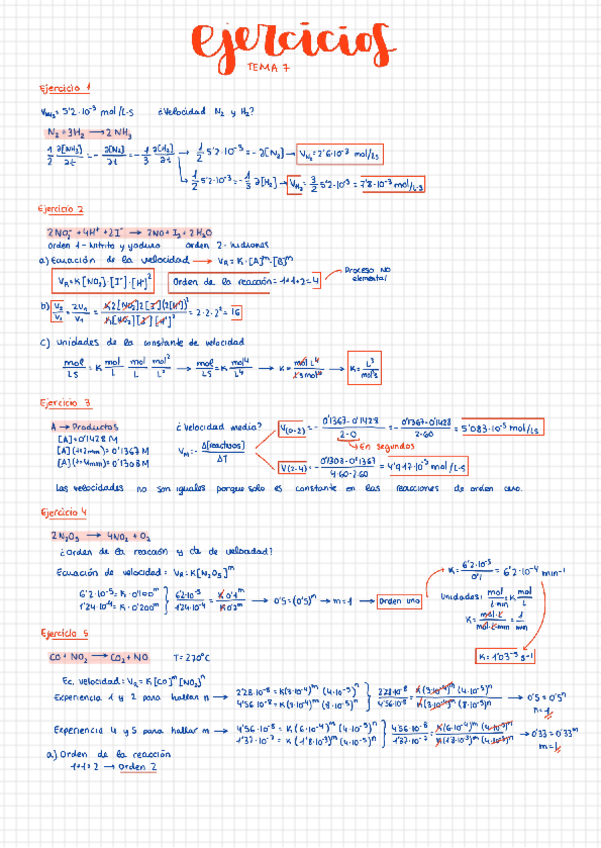 ejercicios
TEMA 7
Ejercicio 1
V_NH₃ = 5'2·10⁻³ mol/L·s ¿Velocidad N₂ y H₂?
N₂ + 3H₂ → 2NH₃
1/2 ∂[NH₃]/∂t = - ∂[N₂]/∂t = - 1/3 ∂[H₂]/∂t → 1/2 5'2·10⁻³ = - ∂[N₂] → V_N₂ = 2'6·10⁻³ mol/Ls
↳ 1/2 5'2·10⁻³ = - 1/3 ∂[H₂] → V_H₂ = 3/2 5'2·10⁻³ = 7'8·10⁻³ mol/L·s
Ejercicio 2
2NO₂⁻ + 4H⁺ + 2I⁻ → 2NO + I₂ + 2H₂O
Orden 1 - Nitrito y yoduro orden 2 - hidrones
a) Ecuación de la velocidad → V_R = K·[A]ᵐ·[B]ᵐ
V_R = K[NO₂]·[I⁻]·[H⁺]² Orden de la reacción = 1+1+2 = 4 Proceso NO elemental
b) V₂/V₁ = 2V₁/V₁ = K2[NO₂]2[I⁻](2[H⁺])²/K[NO₂][I⁻][H⁺]² = 2·2·2² = 16
c) Unidades de la constante de velocidad
mol/LS = K mol/L mol/L mol²/L² → mol/LS = K mol⁴/L⁴ → K = mol L⁴/L s mol⁴ → K = L³/mol³s
Ejercicio 3
A → Productos ¿Velocidad media?
[A] = 0'1428 M
[A](t=2m) = 0'1367 M
[A](t=4mm) = 0'1308 M
V_M = - Δ[reactivos]/ΔT
V(0-2) = - 0'1367-0'1428/2-0 = - 0'1367-0'1428/2·60 = 5'083·10⁻⁵ mol/Ls
↳ En segundos
V(2-4) = - 0'1308-0'1367/4·60-2·60 = 4'917·10⁻⁵ mol/L·s
Las velocidades no son iguales porque solo es constante en las reacciones de orden cero.
Ejercicio 4
2N₂O₅ → 4NO₂ + O₂
¿Orden de la reacción y cte de velocidad?
Ecuación de velocidad = V_R = K[N₂O₅]ᵐ
6'2·10⁻⁵ = K·0'100ᵐ
1'24·10⁻⁴ = K·0'200ᵐ
6'2·10⁻⁵/1'24·10⁻⁴ = K0'1ᵐ/K0'2ᵐ → 0'5 = (0'5)ᵐ → m = 1 → Orden uno
K = 6'2·10⁻⁵/0'1 = 6'2·10⁻⁴ min⁻¹
Unidades: mol/L min = K mol/L
K = mol·L/mol·L·min = 1/min
K = 1'03⁻⁵ s⁻¹
Ejercicio 5
CO + NO₂ → CO₂ + NO T = 270ºC
Ec. velocidad = V_R = K[CO]ᵐ[NO₂]ⁿ
Experiencia 1 y 2 para hallar n → 2'28·10⁻⁸ = K(3·10⁻⁴)ᵐ (4·10⁻⁵)ⁿ
4'56·10⁻⁸ = K(3·10⁻⁴)ᵐ (8·10⁻⁵)ⁿ
2'28·10⁻⁸/4'56·10⁻⁸ = K(3·10⁻⁴)ᵐ(4·10⁻⁵)ⁿ/K(3·10⁻⁴)ᵐ(8·10⁻⁵)ⁿ → 0'5 = 0'5ⁿ
n = 1
Experiencia 4 y 5 para hallar m → 4'56·10⁻⁸ = K(6·10⁻⁴)ᵐ (4·10⁻⁵)ⁿ
1'37·10⁻⁷ = K(1'8·10⁻³)ᵐ (4·10⁻⁵)ⁿ
4'56·10⁻⁸/1'37·10⁻⁷ = K(6·10⁻⁴)ᵐ(4·10⁻⁵)ⁿ/K(1'8·10⁻³)ᵐ(4·10⁻⁵)ⁿ → 0'33 = 0'33ᵐ
m = 1
a) Orden de la reacción
1+1=2 → Orden 2